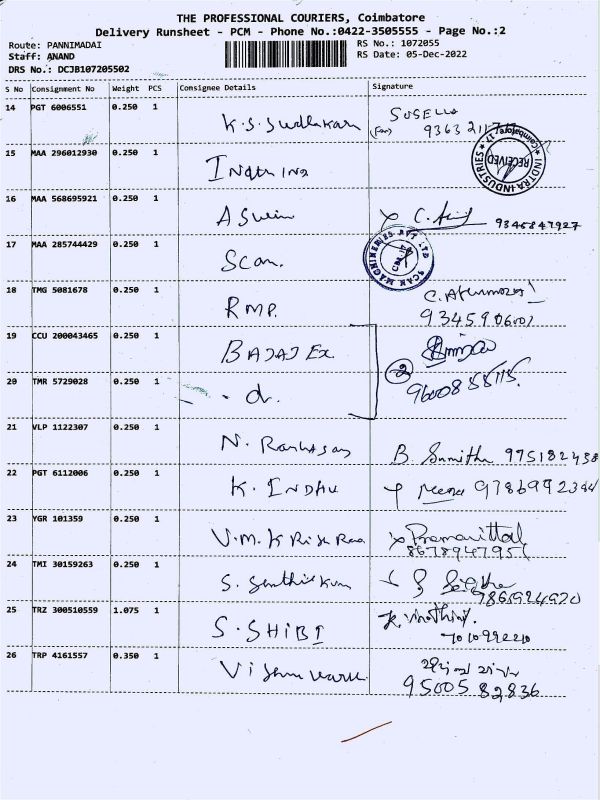 THE PROFESSIONAL COURIERS, Coimbatore
Delivery Runsheet - PCM - Phone No.:0422-3505555 - Page No.:2
Route: PANNIMADAI RS No.: 1072055
Staff: ANAND RS Date: 05-Dec-2022
DRS No.: DCJB107205502
S No Consignment No Weight PCS Consignee Details Signature
14 PGT 6006551 0.250 1 K.S. Sudhakar SUSELLA
9363 211
15 MAA 296012930 0.250 1 Indtra Ind INDTRA INDUSTRIES RECEIVED
16 MAA 568695921 0.250 1 Aswin 9345847927
17 MAA 285744429 0.250 1 Scan. SCAN MACHINERIES PVT LTD
18 TMG 5081678 0.250 1 RMP.
19 CCU 200043465 0.250 1 BAJAJ Ex.
2
20 TMR 5729028 0.250 1 - d.
21 VLP 1122307 0.250 1 N. B. Sumitha 975182458
22 PGT 6112006 0.250 1 K. INDHU Meena 9786992344
23 YGR 101359 0.250 1 V.M.K Premavittal
24 TMI 30159263 0.250 1 S. Senthil Kum
7865924920
25 TRZ 300510559 1.075 1 S. SHIBI
26 TRP 4161557 0.350 1
9500582836